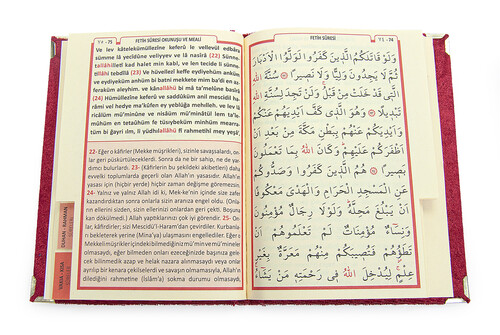 ٧٥ - 75 FETİH SÛRESİ OKUNUŞU VE MEALİ
Ve lev kâtelekümüllezîne keferû le vellevül edbâra
sümme lâ yecidûne veliyyev ve lâ nasîrâ (22) Sünne-
tallâhilletî kad halet min kabl, ve len tecide li sünne-
tillâhi tebdîlâ (23) Ve hüvellezî keffe eydiyehüm anküm
ve eydiyeküm anhüm bi batni mekkete mim ba'di en az-
feraküm aleyhim. ve kânallâhü bi mâ ta'melûne basîrâ
(24) Hümüllezîne keferû ve saddûküm anil mescidil ha-
râmi vel hedye ma'kûfen ey yeblüğa mehılleh. ve lev lâ
ricâlüm mü'minûne ve nisâüm mü'minâtül lem ta'le-
mûhüm en tetaûhüm fe tüsıybeküm minhüm mearra-
tüm bi ğayri ılm, li yüdhılallâhü fî rahmetihî mey yeşâ',
22- Eğer o kâfirler (Mekke müşrikleri), sizinle savaşsalardı, on-
lar geri püskürtüleceklerdi. Sonra da ne bir sahip, ne de yar-
dımcı bulurlardı. 23- (Kâfirlerin bu şekildeki akıbetleri) daha
evvelki toplumlarda geçerli olan Allah'ın yasasıdır. Allah'ın
yasası için (hiçbir yerde) hiçbir zaman değişme göremezsin.
24- Yalnız ve yalnız Allah idi ki, Mekke'nin içinde size zafer
kazandırdıktan sonra onlarla sizin aranıza engel oldu. (Onla-
rın ellerini sizden, sizin ellerinizi onlardan geri çekti. Boşuna
kan dökülmedi.) Allah yaptıklarınızı çok iyi görendir. 25- On-
lar, kâfirdirler; sizi Mescidü'l-Haram'dan çevirdiler. Kurbanla-
rı bekleterek yerine (Mina'ya) ulaşmasını engellediler. Eğer o
Mekkeli müşriklerin içinde bilmediğiniz mü'min ve mü'mine ler
olmasaydı, eğer bilmeden onları ezeceğinizde başınıza gele-
cek bilinmedik azap ve helak nazara alınmasaydı veya onlar
ayrılıp bir kenara çekilselerdi ve savaşın olmamasıyla, Allah'ın
dilediğini rahmetine (İslâm'a) sokma durumu olmasaydı,
FETİH SÛRESİ ٧٤ - 74
وَلَوْ قَاتَلَكُمُ الَّذِينَ كَفَرُوا لَوَلَّوُا الْاَدْبَارَ
ثُمَّ لَا يَجِدُونَ وَلِيًّا وَلَا نَصِيرًا ﴿٢٢﴾ سُنَّةَ اللّٰهِ
الَّتِي قَدْ خَلَتْ مِنْ قَبْلُ وَلَنْ تَجِدَ لِسُنَّةِ اللّٰهِ
تَبْدِيلًا ﴿٢٣﴾ وَهُوَ الَّذِي كَفَّ اَيْدِيَهُمْ عَنْكُمْ
وَاَيْدِيَكُمْ عَنْهُمْ بِبَطْنِ مَكَّةَ مِنْ بَعْدِ اَنْ
اَظْفَرَكُمْ عَلَيْهِمْ وَكَانَ اللّٰهُ بِمَا تَعْمَلُونَ
بَصِيرًا ﴿٢٤﴾ هُمُ الَّذِينَ كَفَرُوا وَصَدُّوكُمْ
عَنِ الْمَسْجِدِ الْحَرَامِ وَالْهَدْيَ مَعْكُوفًا
اَنْ يَبْلُغَ مَحِلَّهُ وَلَوْلَا رِجَالٌ مُؤْمِنُونَ
وَنِسَاءٌ مُؤْمِنَاتٌ لَمْ تَعْلَمُوهُمْ اَنْ
تَطَؤُهُمْ فَتُصِيبَكُمْ مِنْهُمْ مَعَرَّةٌ بِغَيْرِ
عِلْمٍ لِيُدْخِلَ اللّٰهُ فِي رَحْمَتِهِ مَنْ يَشَاءُ
DUHAN - RAHMAN
VAKIA - HAŞR